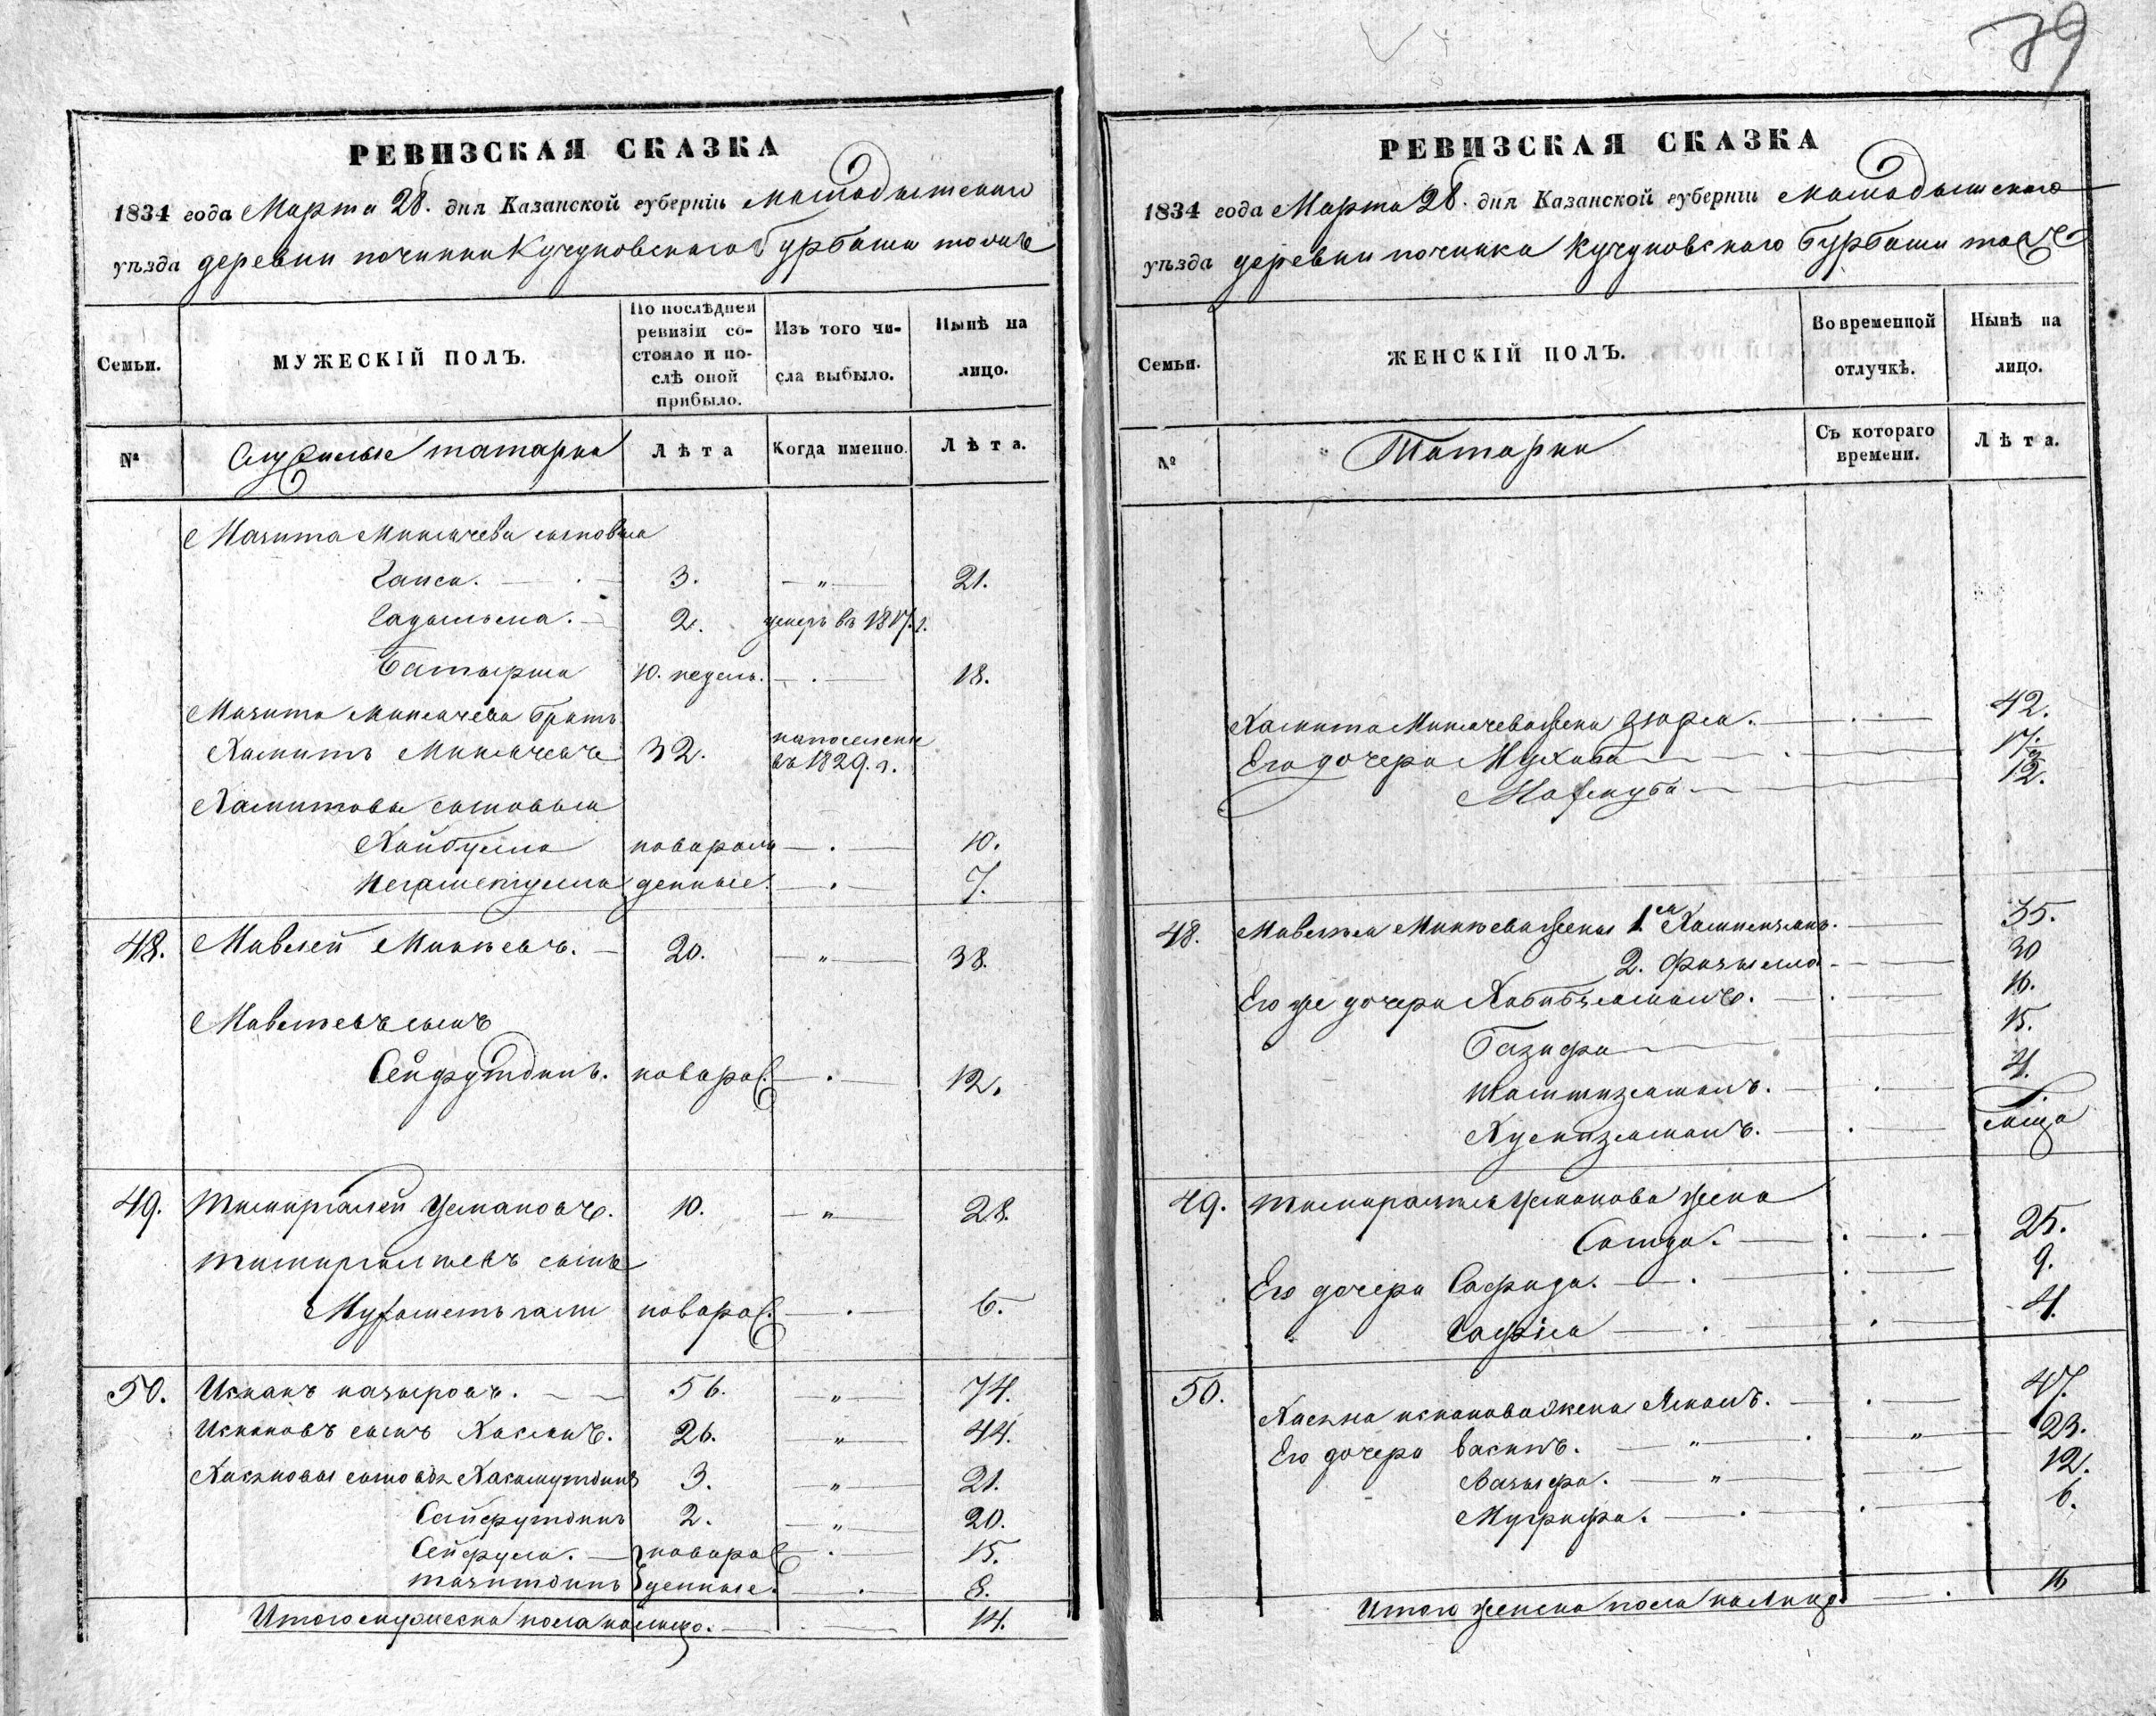 79
РЕВИЗСКАЯ СКАЗКА
1834 года Марта 28. дня Казанской губернiи Мамадышскаго
уѣзда деревни починки Кучуковскаго Бурбаши тожъ
Семьи.
МУЖЕСКІЙ ПОЛЪ.
По послѣдней ревизіи состояло и послѣ оной прибыло.
Изъ того числа выбыло.
Нынѣ на лицо.
№
Служилые татары
Лѣта
Когда именно.
Лѣта.
Мазита Микычева сыновья
Гапса. 3. — " — 21.
2. умеръ въ 1817. г.
Батырша 10. недель. — . — 18.
Мазита Микычева братъ
Хамитъ Микычевъ 32. на поселенье въ 1829. г.
Хамитовы сыновья
Хайбулла новорож — . — 10.
Негаметулла денные. — . — 7.
48. Мавлей Микѣевъ. 20. — " — 38.
Мавлѣевъ сынъ
Сейфутдинъ. новорож. — . — 12.
49. Тимиргалей Усмановъ. 10. — " — 28.
Тимиргалѣевъ сынъ
Мухаметьгали новорож. — . — 6.
50. Исканъ Назыровъ. 56. — " — 74.
Искановъ сынъ Хасанъ. 26. — " — 44.
Хасановы сыновья Хасамутдинъ 3. — " — 21.
Сайфутдинъ 2. — " — 20.
Сейфулла. новорож — . — 15.
Тазитдинъ денные. — . — 8.
Итого мужеска пола налицо. 14.
РЕВИЗСКАЯ СКАЗКА
1834 года Марта 28. дня Казанской губернiи Мамадышскаго
уѣзда деревни починка Кучуковскаго Бурбаши тожъ
Семьи.
ЖЕНСКІЙ ПОЛЪ.
Во временной отлучкѣ.
Нынѣ на лицо.
№
Татарки
Съ котораго времени.
Лѣта.
Хамита Микычева жена Зюрса. — . — 42.
Его дочери Мухиба — . — 17.
Махмуба — 12.
48. Мавлѣя Микѣева жены 1я — 35.
2. Фазылла — 30
Его же дочери Хабибзяманъ. — . — 16.
Газифа — 15.
Шамшизяманъ. — . — 4.
Хуснизяманъ. — . —
49. Тимиргалѣя Усманова жена
Сагида. — . — . — 25.
Его дочери Сафида. — . — 9.
Сафiя — . — 4.
50. Хасана Исканова жена — . — 47.
Его дочери Васипъ. — " — . — " — 23.
Вазыфа. — " — 12.
Муфифа. — . — 6.
Итого женска пола налицо — . 16